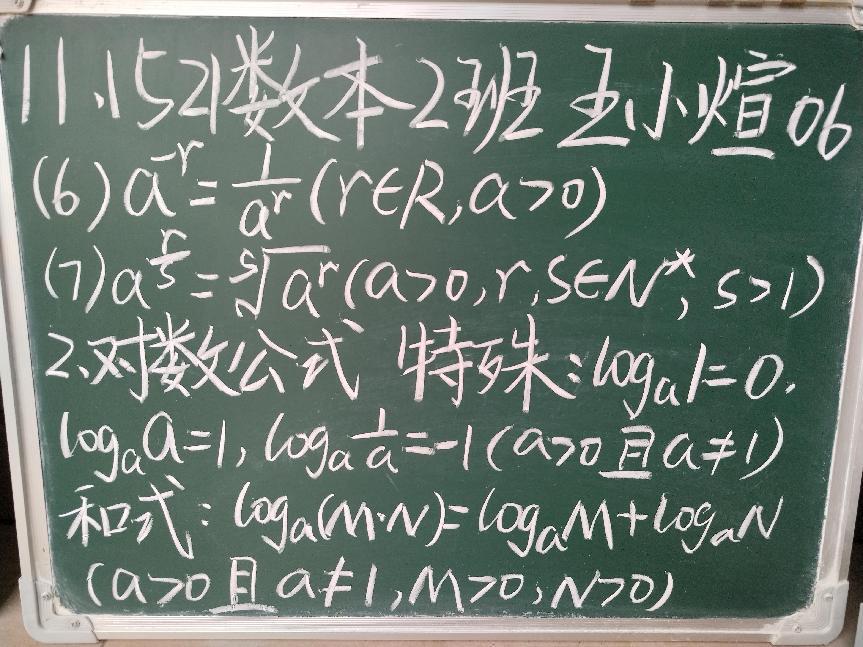 11.15 21数本2班 王小煊 06
(6) a^{-r} = \frac{1}{a^r} (r∈R, a>0)
(7) a^{\frac{r}{s}} = \sqrt[s]{a^r} (a>0, r, s∈N*, s>1)
2.对数公式 特殊:log_a 1=0.
log_a a=1, log_a \frac{1}{a}=-1 (a>0且a≠1)
和式:log_a(M·N)=log_a M+log_a N
(a>0且a≠1, M>0, N>0)